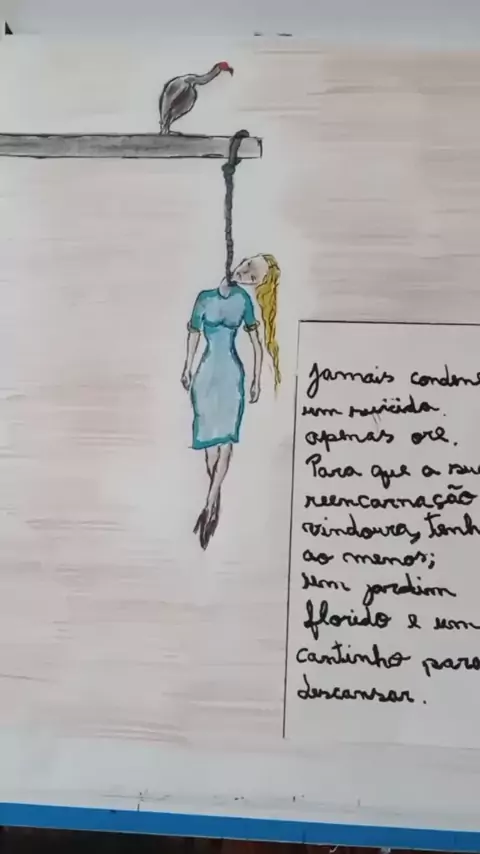 Jamais conden
um suicida.
apenas ore.
Para que a su
reencarnação
vindoura, tenh
ao menos;
um jardim
florido e um
cantinho para
descansar.